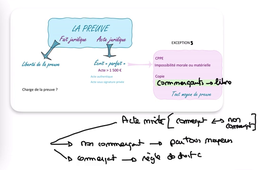 LA PREUVE
Fait juridique Acte juridique
EXCEPTIONS
Liberté de la preuve
Écrit « parfait »
Acte > 1 500 €
CPPE
Impossibilité morale ou matérielle
Copie
commerçants → libre
Tout moyen de preuve
Charge de la preuve ?
Acte mixte [commerçt ↔ non commerçt]
→ non commerçant → par tous moyens
→ commerçant → règle du droit c